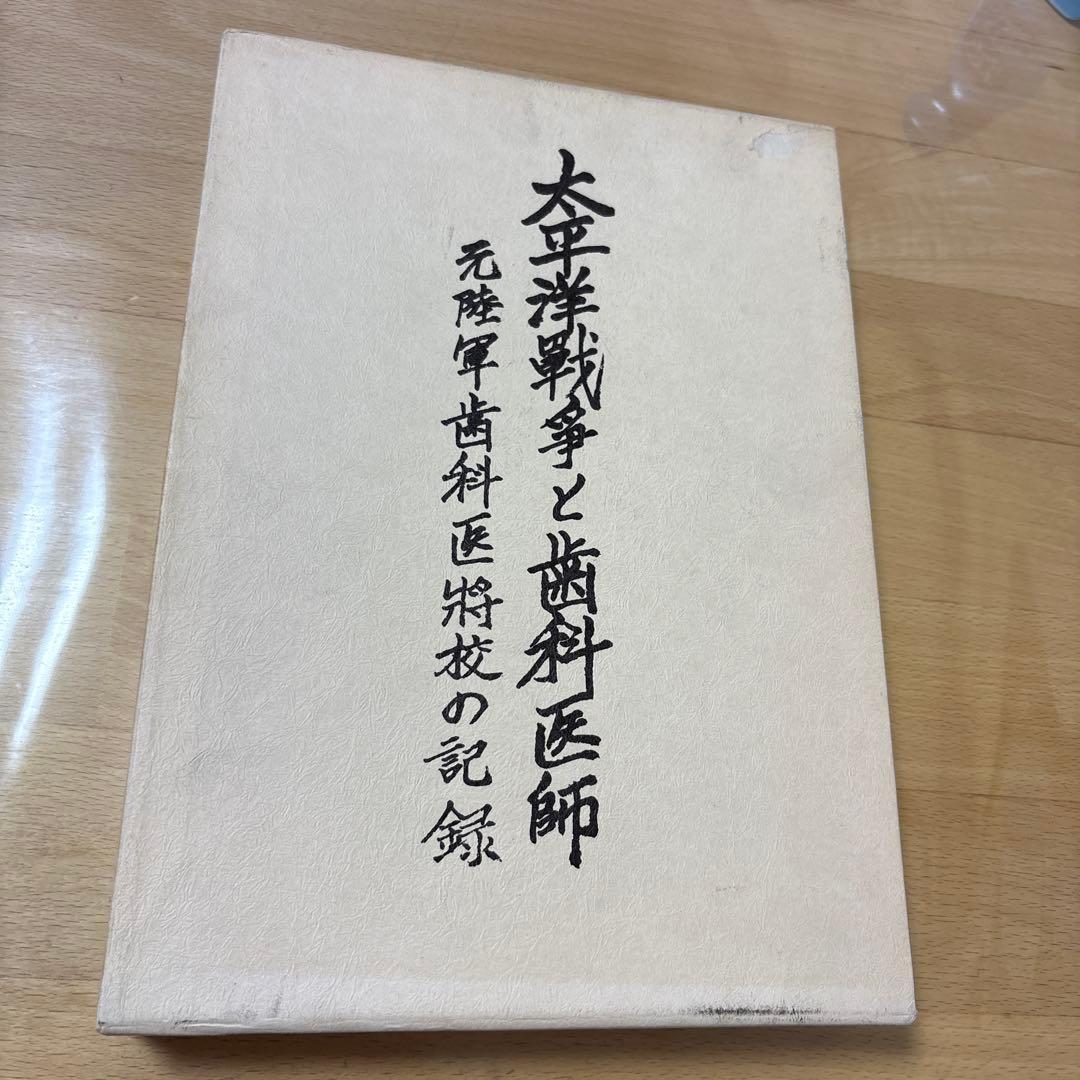 太平洋戰爭と歯科医師
元陸軍歯科医將校の記録